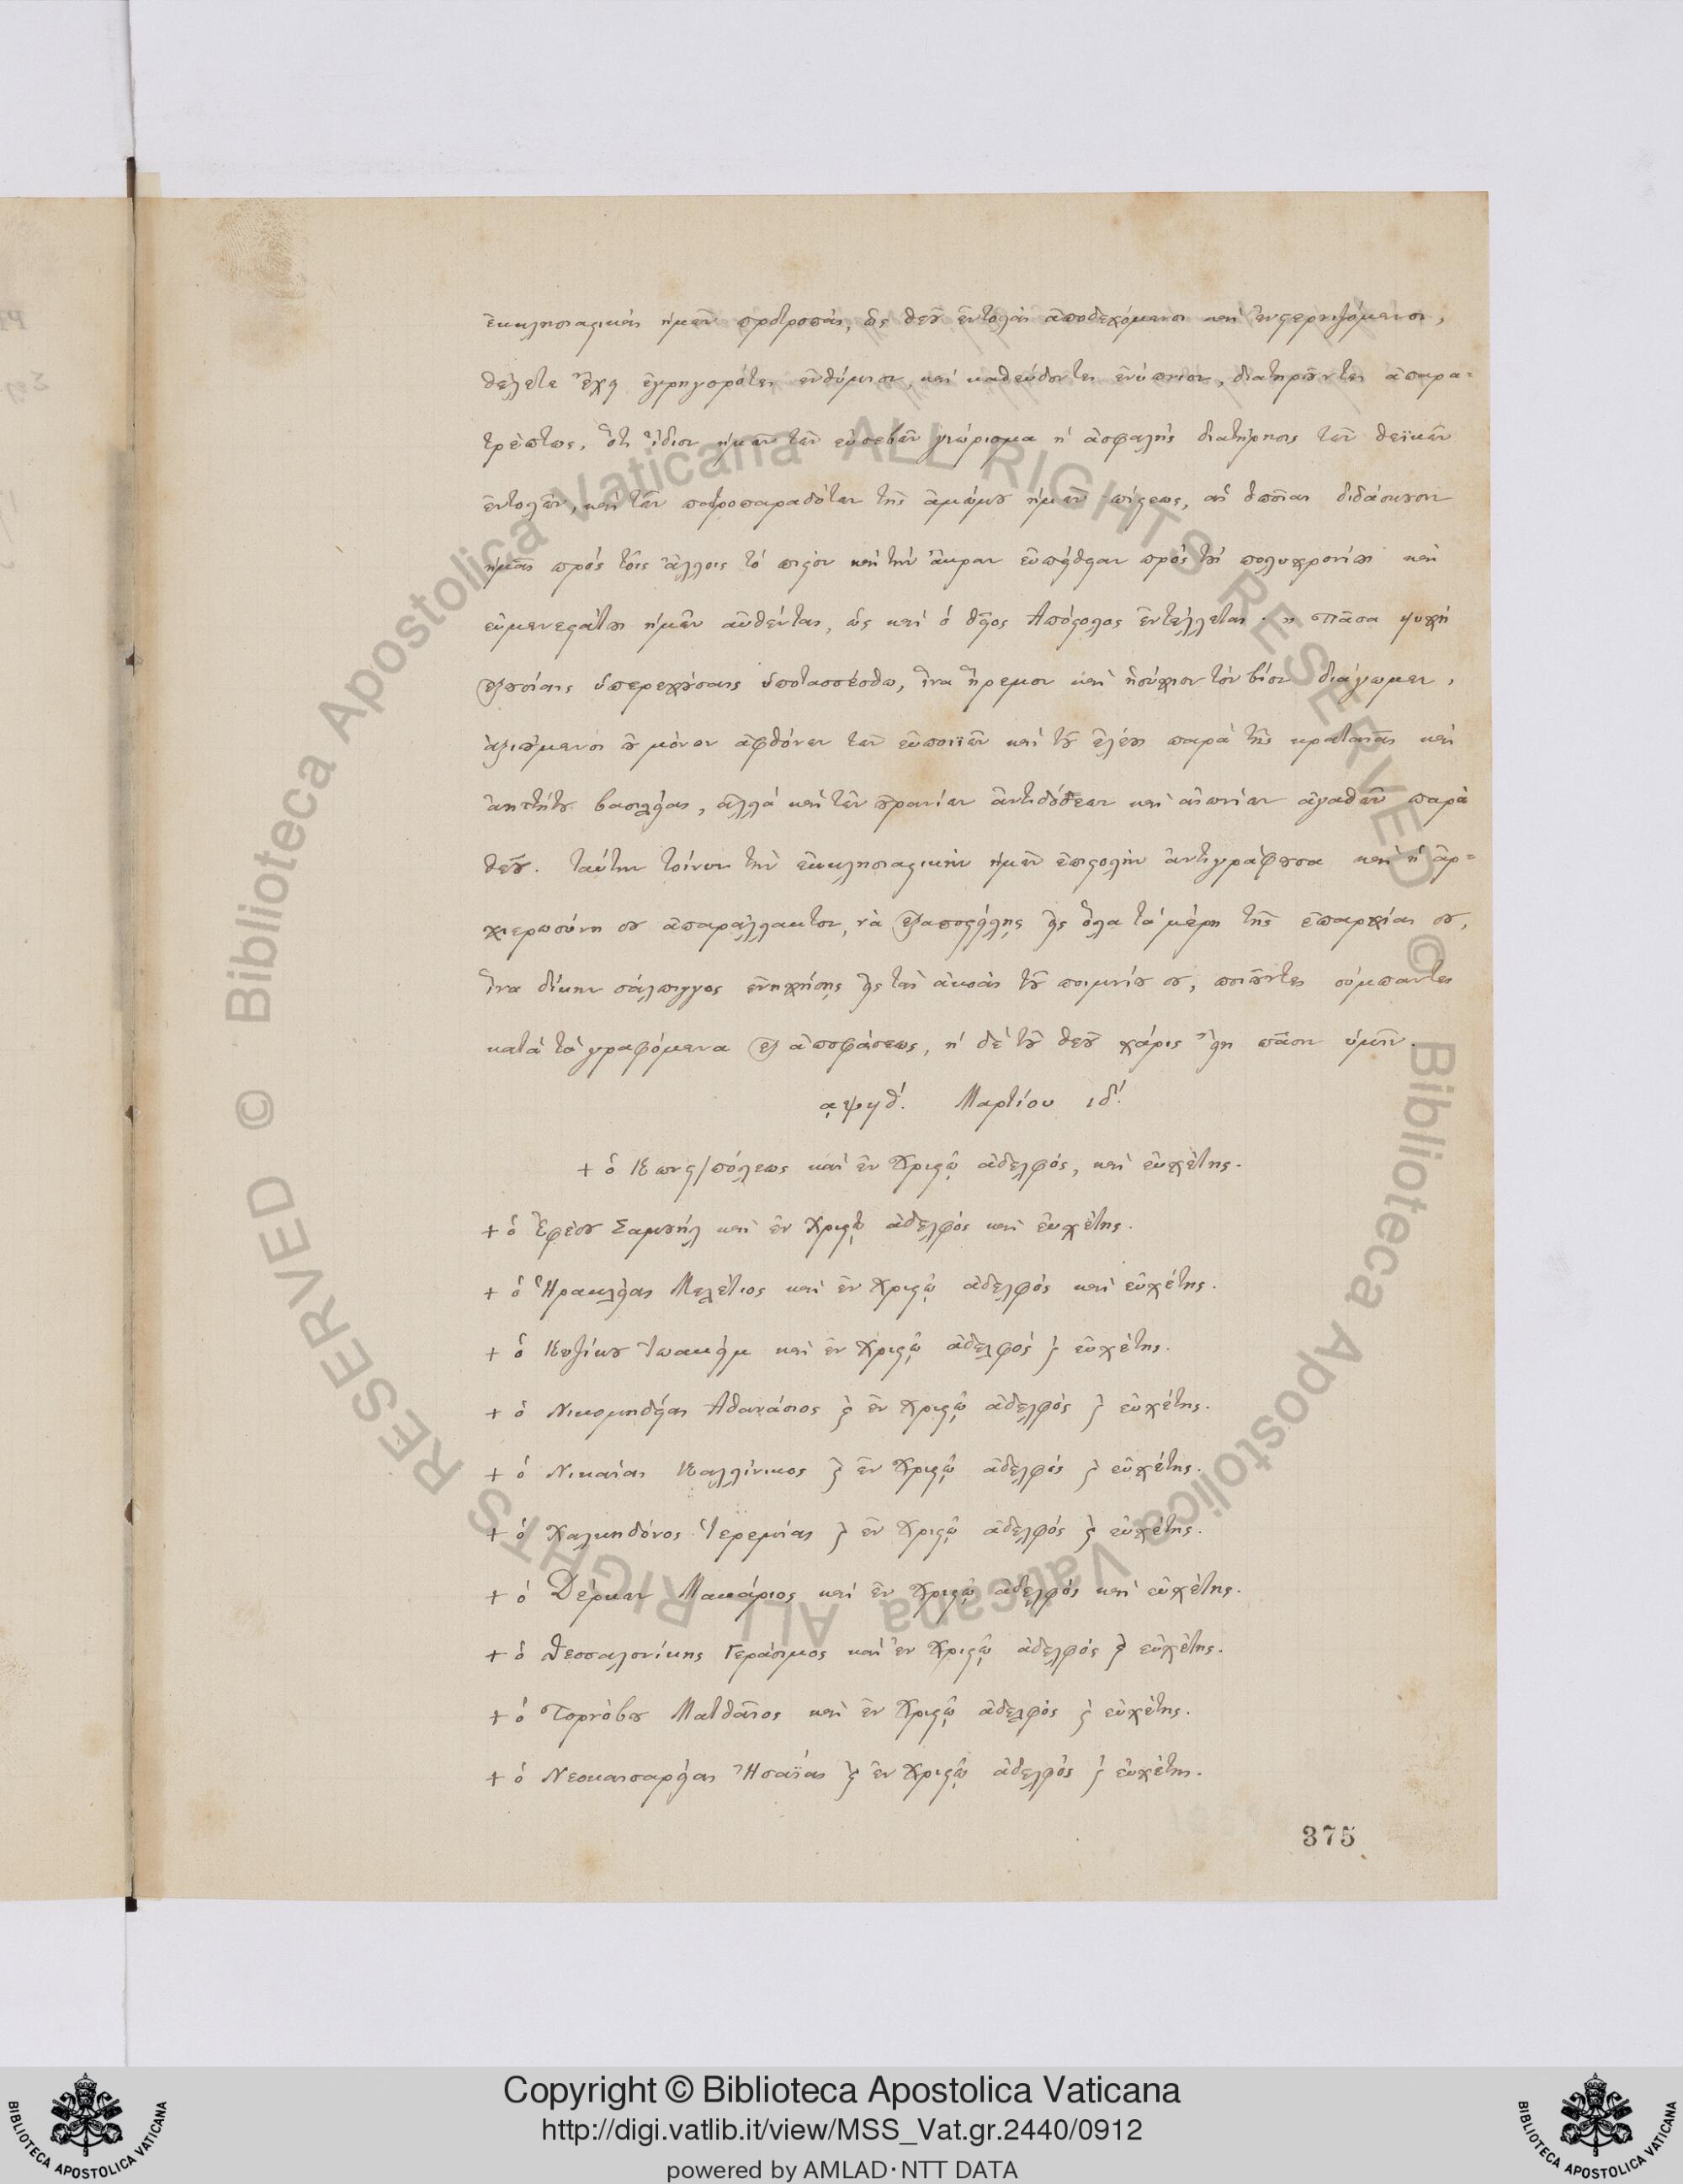 ἐκκλησιαστικὰς ἡμῶν προτροπάς, ὡς θεοῦ ἐντολὰς ἀποδεχόμενοι καὶ ἐνστερνιζόμενοι,
θέλετε ἔχει ἐγρηγορότες ἐνθύμιον, καὶ καθεύδοντες ἐνύπνιον, διατηροῦντες ἀπαρα=
τρέπτως, ὅτι ἴδιον ἡμῶν τῶν εὐσεβῶν γνώρισμα ἡ ἀσφαλὴς διατήρησις τῶν θεϊκῶν
ἐντολῶν, καὶ τῶν πατροπαραδότων τῆς ἀμώμου ἡμῶν πίστεως, αἱ ὁποῖαι διδάσκουσιν
ἡμᾶς πρὸς τοῖς ἄλλοις τὸ πιστὸν καὶ τὴν ἄκραν εὐπείθειαν πρὸς τοὺς πολυχρονίους καὶ
εὐμενεστάτους ἡμῶν αὐθέντας, ὡς καὶ ὁ θεῖος Ἀπόστολος ἐντέλλεται· „ πᾶσα ψυχὴ
ἐξουσίαις ὑπερεχούσαις ὑποτασσέσθω, ἵνα ἤρεμον καὶ ἡσύχιον τὸν βίον διάγωμεν,
ἀξιούμενοι οὐ μόνον ἀφθόνων τῶν εὐποιϊῶν καὶ τοῦ ἐλέους παρὰ τῆς κραταιᾶς καὶ
ἀηττήτου βασιλείας, ἀλλὰ καὶ τῶν οὐρανίων ἀντιδόσεων καὶ αἰωνίων ἀγαθῶν παρὰ
θεοῦ. ταύτην τοίνυν τὴν ἐκκλησιαστικὴν ἡμῶν ἐπιστολὴν ἀντιγράφουσα καὶ ἡ ἀρ=
χιερωσύνη σου ἀπαράλλακτον, νὰ ἐξαποστείλῃς εἰς ὅλα τὰ μέρη τῆς ἐπαρχίας σου,
ἵνα δίκην σάλπιγγος ἐνηχήσῃς εἰς τὰς ἀκοὰς τοῦ ποιμνίου σου, ποιοῦντες σύμπαντες
κατὰ τὰ γραφόμενα ἐξ ἀποφάσεως, ἡ δὲ τοῦ θεοῦ χάρις εἴη πᾶσιν ὑμῖν.
͵αψϟθ΄. Μαρτίου ιδ΄.
+ ὁ Κωνστ/πόλεως καὶ ἐν Χριστῷ ἀδελφός, καὶ εὐχέτης.
+ ὁ Ἐφέσου Σαμουὴλ καὶ ἐν Χριστῷ ἀδελφὸς καὶ εὐχέτης.
+ ὁ Ἡρακλείας Μελέτιος καὶ ἐν Χριστῷ ἀδελφὸς καὶ εὐχέτης.
+ ὁ Κυζίκου Ἰωακεὶμ καὶ ἐν Χριστῷ ἀδελφὸς ϗ εὐχέτης.
+ ὁ Νικομηδείας Ἀθανάσιος ϗ ἐν Χριστῷ ἀδελφὸς ϗ εὐχέτης.
+ ὁ Νικαίας Καλλίνικος ϗ ἐν Χριστῷ ἀδελφὸς ϗ εὐχέτης.
+ ὁ Χαλκηδόνος Ἱερεμίας ϗ ἐν Χριστῷ ἀδελφὸς ϗ εὐχέτης.
+ ὁ Δέρκων Μακάριος καὶ ἐν Χριστῷ ἀδελφὸς καὶ εὐχέτης.
+ ὁ Θεσσαλονίκης Γεράσιμος καὶ ἐν Χριστῷ ἀδελφὸς ϗ εὐχέτης.
+ ὁ Τορνόβου Ματθαῖος καὶ ἐν Χριστῷ ἀδελφὸς ϗ εὐχέτης.
+ ὁ Νεοκαισαρείας Ἡσαΐας ϗ ἐν Χριστῷ ἀδελφὸς ϗ εὐχέτης.
375
© Biblioteca Apostolica Vaticana ALL RIGHTS RESERVED © Biblioteca Apostolica Vaticana ALL RIGHTS RESERVED
Copyright © Biblioteca Apostolica Vaticana
http://digi.vatlib.it/view/MSS_Vat.gr.2440/0912
powered by AMLAD·NTT DATA
BIBLIOTECA APOSTOLICA VATICANA
BIBLIOTECA APOSTOLICA VATICANA